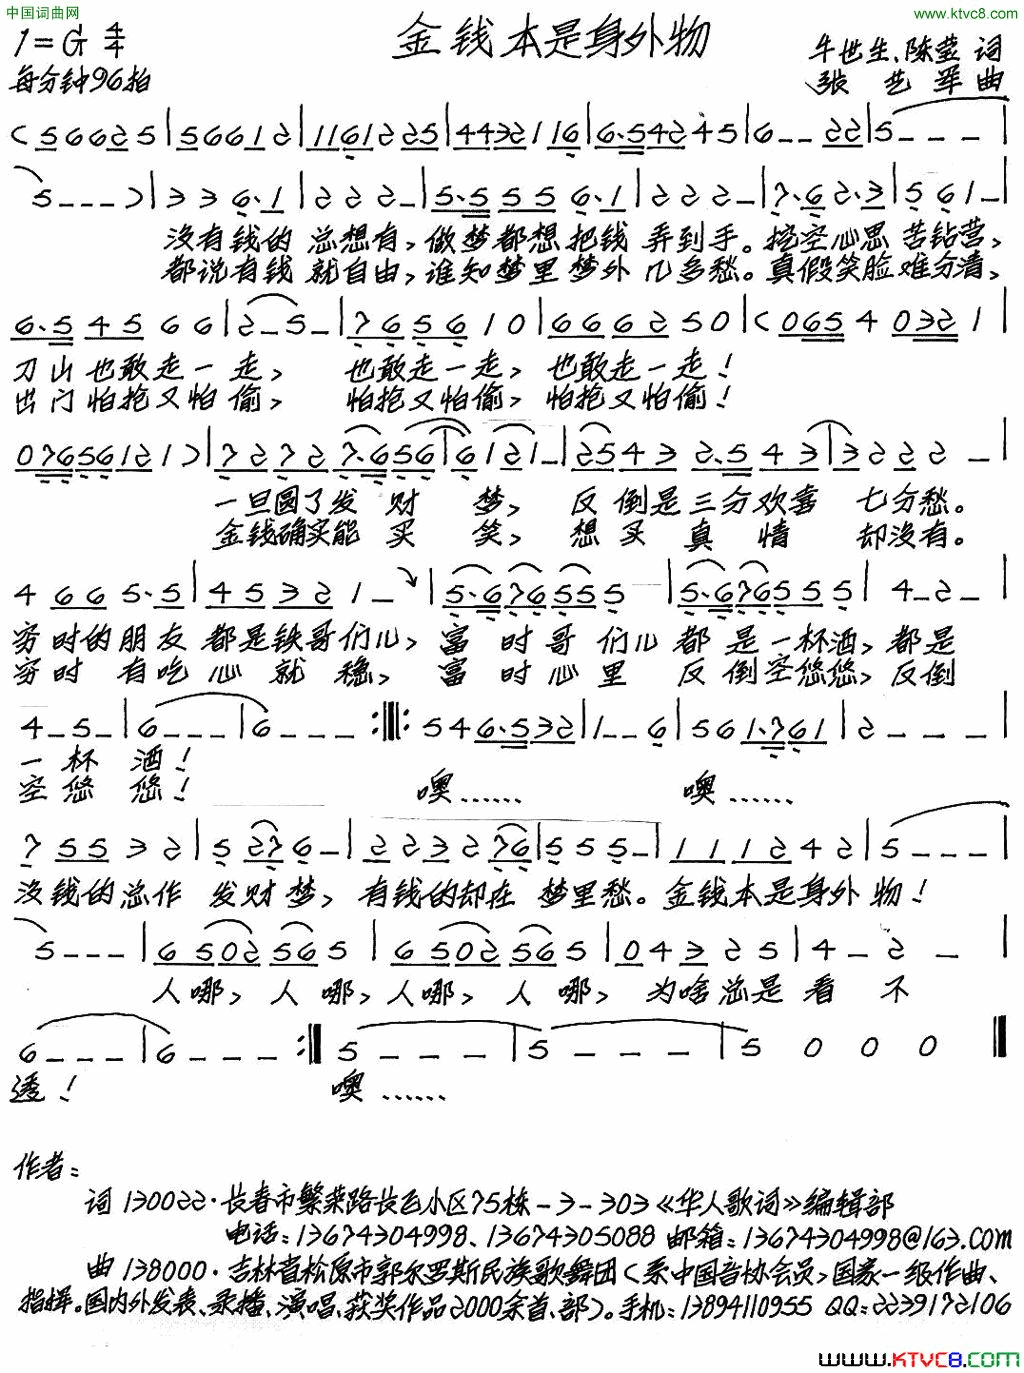 中国词曲网
www.ktvc8.com
金钱本是身外物
1=G 4/4
牛世生、陈莹 词
每分钟96拍
张艺军 曲
(56625|56612|11612225|4432116|6·54245|6--22|5---|
5---)|336·1|222-|5·5556·1|222-|7·62·3|561-|
没有钱的总想有,做梦都想把钱弄到手。挖空心思苦钻营,
都说有钱就自由,谁知梦里梦外几多愁。真假笑脸难分清,
6·54566|2-5-|765610|666250|(06540321|
刀山也敢走一走,也敢走一走,也敢走一走!
出门怕抢又怕偷,怕抢又怕偷,怕抢又怕偷!
07656121)|72727·656|6121-|25432·543|3222-|
一旦圆了发财梦,反倒是三分欢喜七分愁。
金钱确实能买笑,想买真情却没有。
4665·5|45321-|5·676555|5·676555|4-2-|
穷时的朋友都是铁哥们儿,富时哥们儿都是一杯酒,都是
穷时有吃心就稳,富时心里反倒空悠悠,反倒
4-5-|6---|6---:||:546·532|1--6|561·761|2---|
一杯酒!
空悠悠!
噢…… 噢……
75532|5276-|2232276|555-|111242|5---|
没钱的总作发财梦,有钱的却在梦里愁。金钱本是身外物!
5---|6502565|6502565|04325|4-2-|
人哪,人哪,人哪,人哪,为啥总是看不
6---|6---:|5---|5---|5000||
透! 噢……
作者:
词 130022·长春市繁荣路长飞小区75栋-3-303《华人歌词》编辑部
电话:13674304998、13674305088 邮箱:13674304998@163.com
曲 138000·吉林省松原市郭尔罗斯民族歌舞团(系中国音协会员,国家一级作曲、
指挥。国内外发表、录播、演唱、获奖作品2000余首、部)。手机:13894110955 QQ:2239172106
www.KTVC8.com